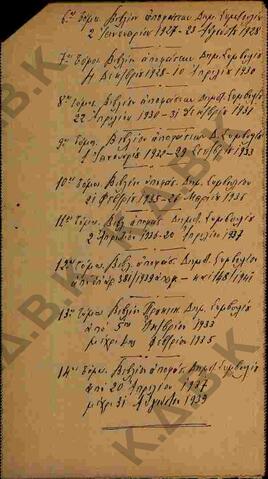 6ος Τόμος Βιβλίον ἀποφάσεων Δημ. Συμβουλίου
2 Ἰανουαρίου 1927 - 23 1928
7ος Τόμος Βιβλίον ἀποφάσεων Δημ. Συμβουλίου
11 Δεκεμβρίου 1928 - 10 Ἀπριλίου 1930
8ος Τόμος Βιβλίον ἀποφάσεων Δημοτ. Συμβουλίου
22 Ἀπριλίου 1930 - 31 1931
9ος Τόμος Βιβλίον ἀποφάσεων Δ. Συμβουλίου
1 Ἰανουαρίου 1932 - 29 1933
10ος Τόμος Βιβλίον ἀποφάσ. Δημοτ. Συμβουλίου
21 1935 - 26 Μαρτίου 1936
11ος Τόμος Βιβλ. ἀποφάσ. Δημοτ. Συμβουλίου
2 Ἀπριλίου 1936 - 20 Ἀπριλίου 1937
12ος Τόμος Βιβλ. ἀποφάσ. Δημοτ. Συμβουλίου
ἀπὸ ἀρ. 381/1939
13ος Τόμος Βιβλίον Πρακτικ. Δημ. Συμβουλίου
ἀπὸ 5ης Ὀκτωβρίου 1933
μέχρι 1935
14ος Τόμος Βιβλίον ἀποφάσ. Δημοτ. Συμβουλίου
ἀπὸ 20 Ἀπριλίου 1937
μέχρι 31 Αὐγούστου 1939
Δ.Β.Κ